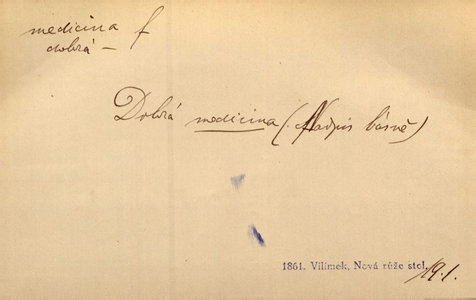 medicina f
dobrá —
Dobrá medicina (. Nadpis básně)
1861. Vilímek, Nová růže stol.
19.1.